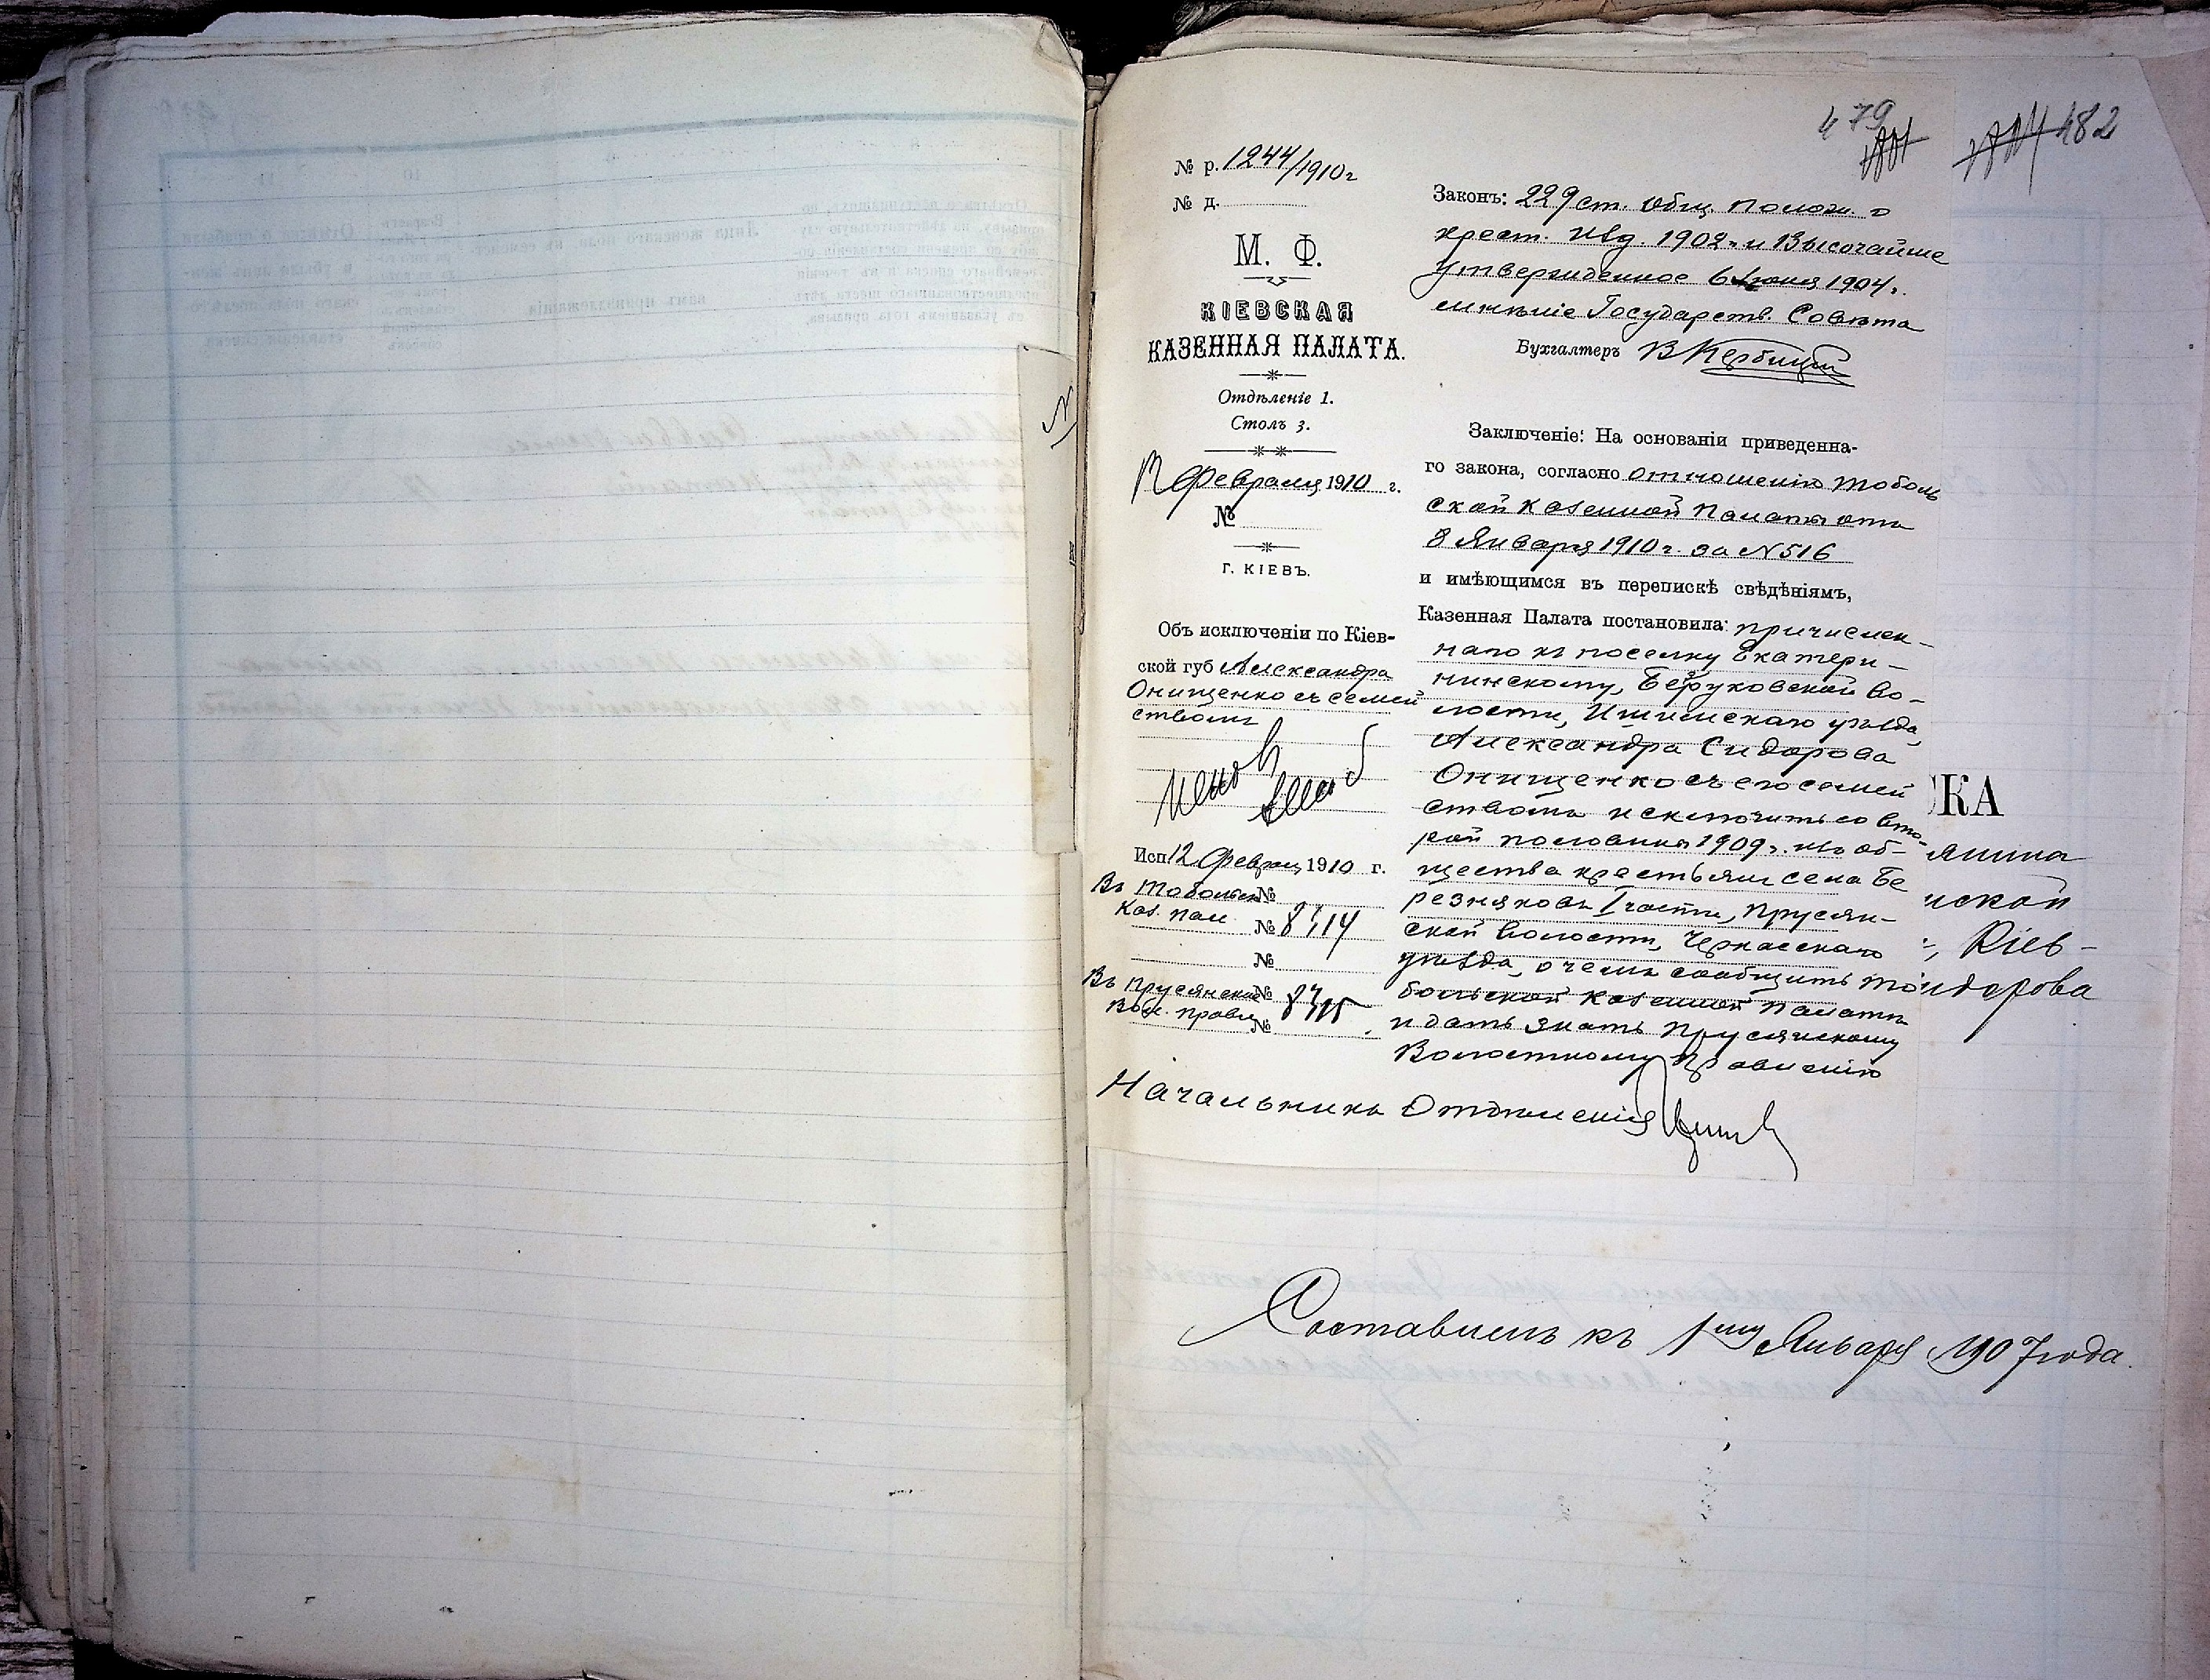 479
482
№ р. 1244/1910 г
№ д.
М. Ф.
КІЕВСКАЯ
КАЗЕННАЯ ПАЛАТА.
Отдѣленіе 1.
Столъ 3.
12 Февраля 1910 г.
№
Г. КІЕВЪ.
Объ исключеніи по Кіев-
ской губ Александра
Онищенко съ семей
ствомъ
Исп 12 Февраля 1910 г.
Въ Тобольск №
Каз. Пал. № 8714
№
Въ Прусянское №
Вол. Правл № 8715
Законъ: 229 ст. Общ. Полож. о
крест. Изд. 1902 г. и Высочайше
утвержденное 6 Іюня 1904 г.
мнѣніе Государств. Совѣта
Бухгалтеръ В Кербицкій
Заключеніе: На основаніи приведенна-
го закона, согласно отношенію Тоболь
ской Казенной Палаты отъ
8 Января 1910 г. за N 516
и имѣющимся въ перепискѣ свѣдѣніямъ,
Казенная Палата постановила: причислен-
наго къ поселку Екатери-
нинскому, во-
лости, Ишимскаго уѣзда,
Александра Сидорова
Онищенко съ его семей
ствомъ исключить со вто-
рой половины 1909 г. изъ об-
щества крестьянъ села Бе
резняковъ I части, Прусян-
ской волости, Черкасскаго
уѣзда, о чемъ сообщить То
больской Казенной Палатѣ
и дать знать Прусянскому
Волостному Правленію
Начальникъ Отдѣленія
КА
янина
нской
, Кіев-
идорова
Составленъ къ 1му Января 1907 года.